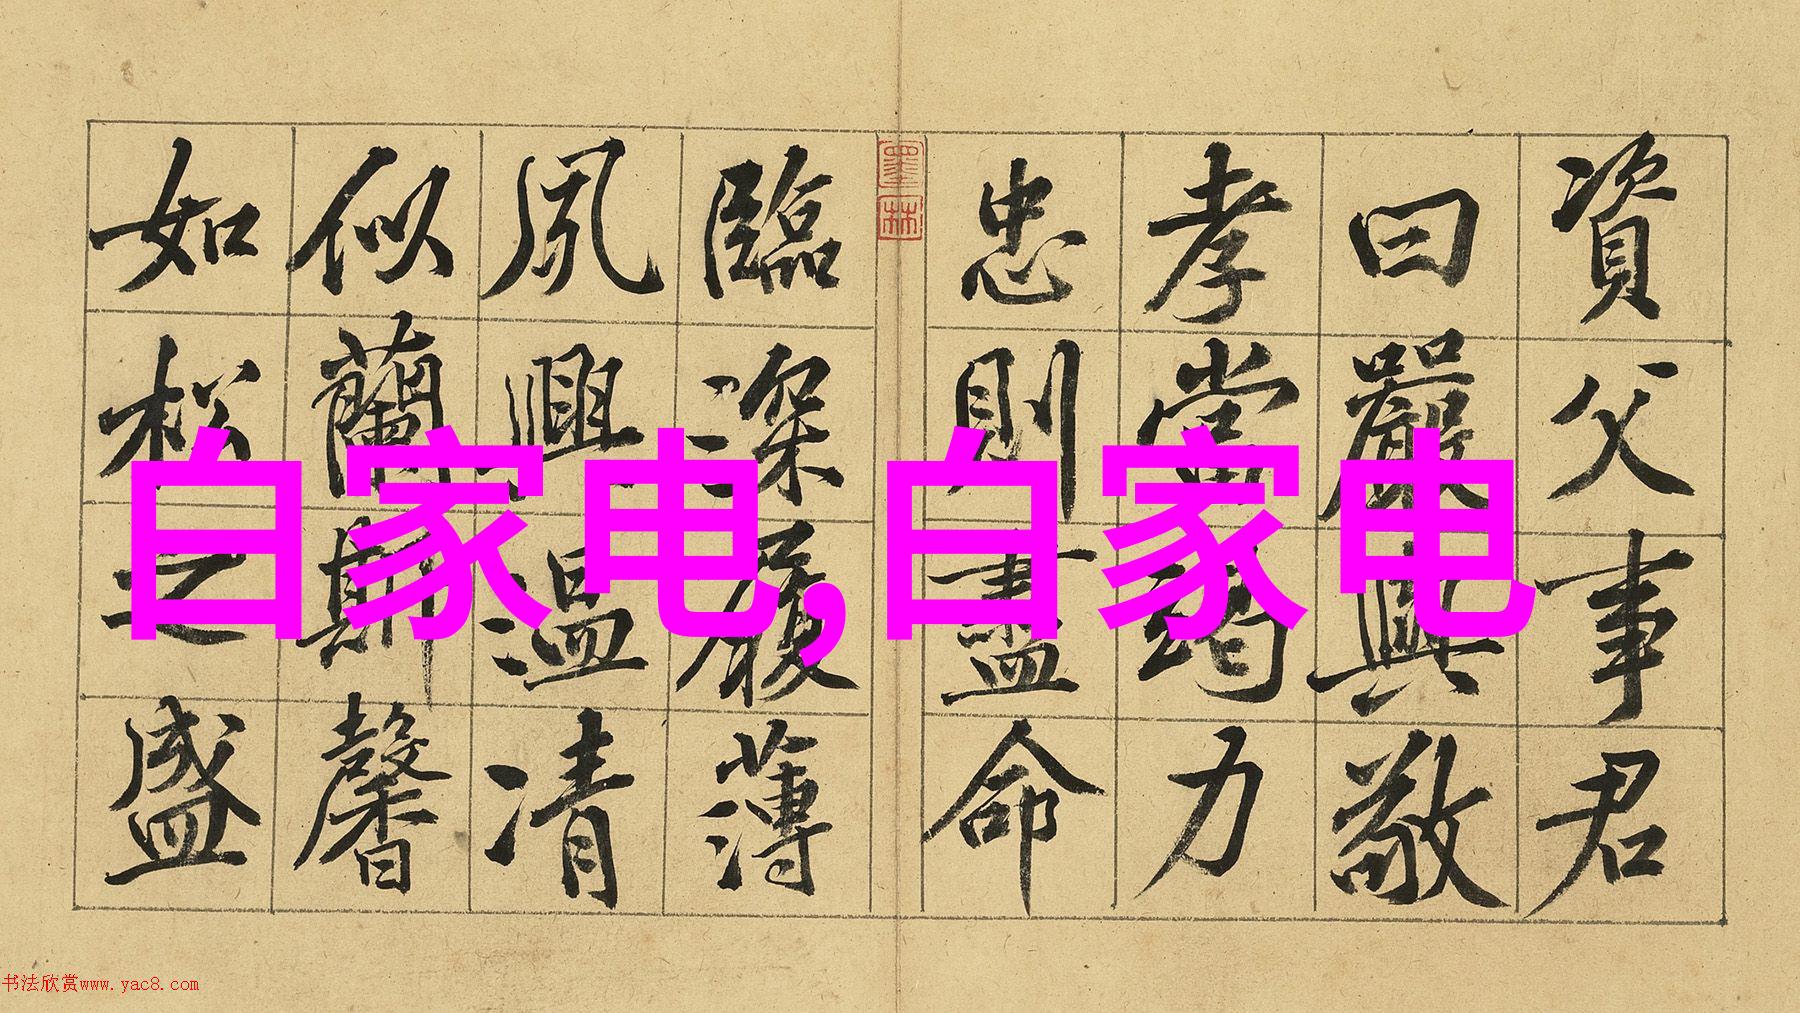 資父事君
曰嚴與敬
孝當竭力
忠則盡命
墨林
臨深履薄
夙興溫凊
似蘭斯馨
如松之盛
白家电,白家电
书法欣赏www.yac8.com